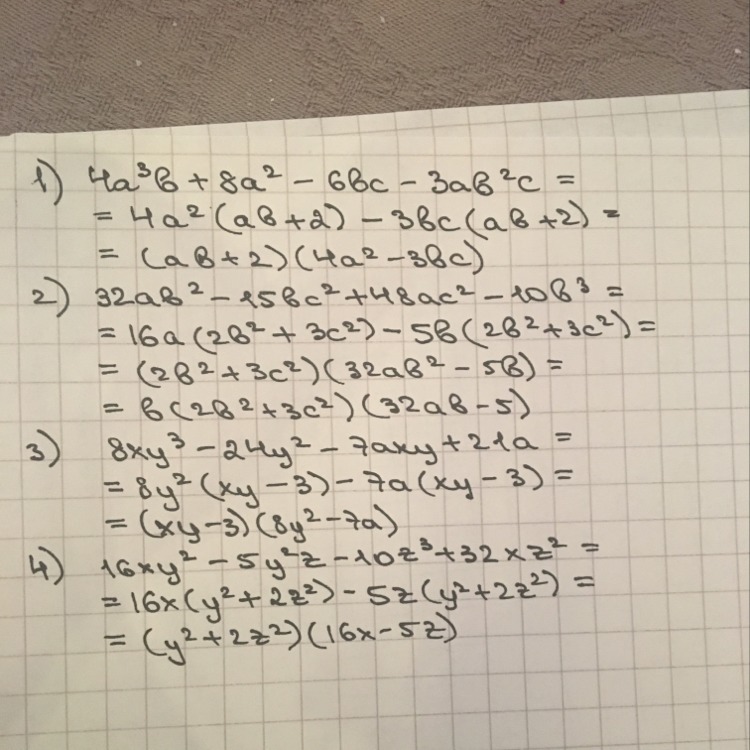 1) 4a³b + 8a² - 6bc - 3ab²c =
= 4a² (ab + 2) - 3bc (ab + 2) =
= (ab + 2) (4a² - 3bc)
2) 32ab² - 15bc² + 48ac² - 10b³ =
= 16a (2b² + 3c²) - 5b (2b² + 3c²) =
= (2b² + 3c²) (32ab² - 5b) =
= b (2b² + 3c²) (32ab - 5)
3) 8xy³ - 24y² - 7axy + 21a =
= 8y² (xy - 3) - 7a (xy - 3) =
= (xy - 3) (8y² - 7a)
4) 16xy² - 5y²z - 10z³ + 32xz² =
= 16x (y² + 2z²) - 5z (y² + 2z²) =
= (y² + 2z²) (16x - 5z)